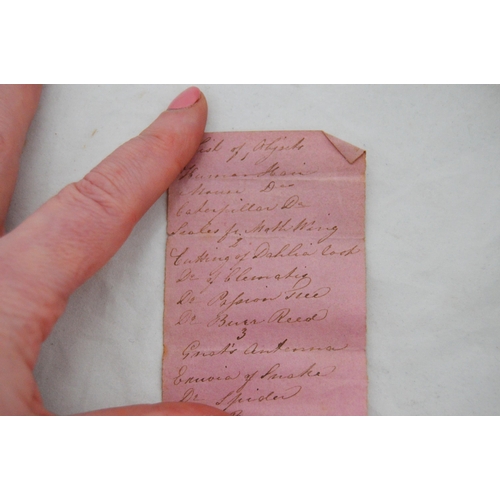 List of Objects
Human Hair
Mouse Do
Caterpillar Do
Scales fr Moth Wing
2
Cutting of Dahlia root
Do of Clematis
Do Passion tree
Do Burr Reed
3
Gnat's Antenna
Exuvia of Snake
Do Spider